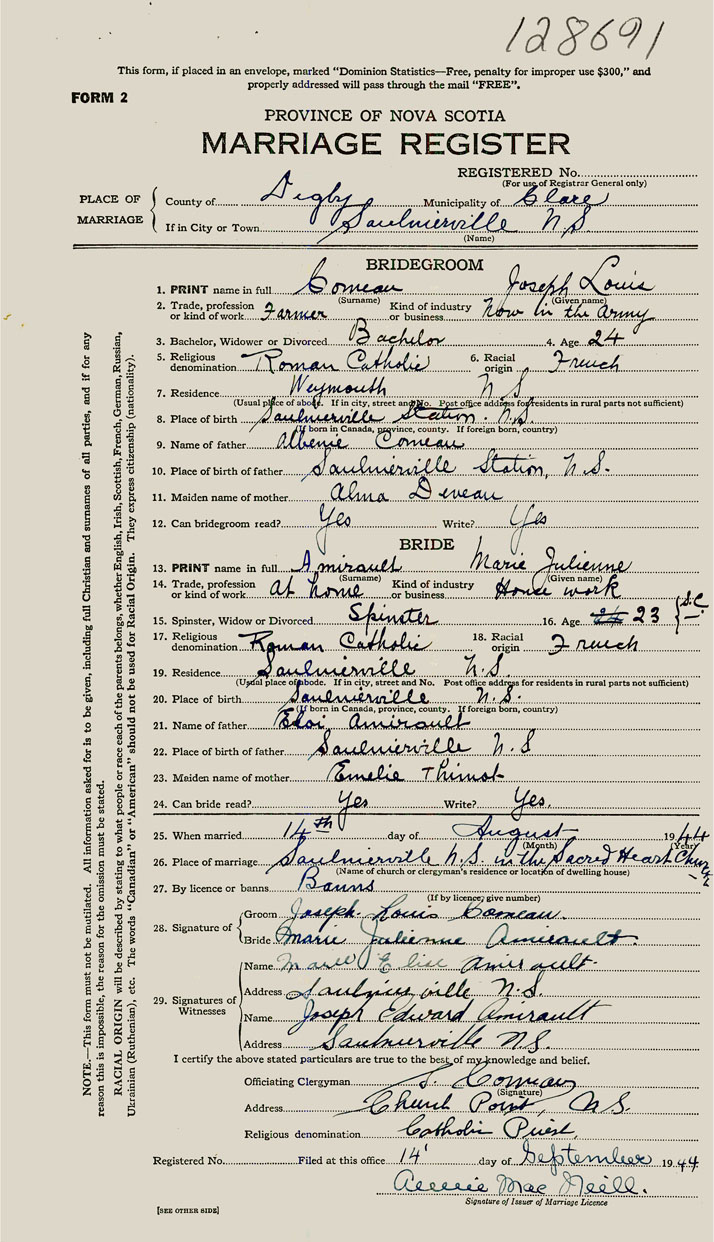 128691
This form, if placed in an envelope, marked "Dominion Statistics—Free, penalty for improper use $300," and
properly addressed will pass through the mail "FREE".
FORM 2
PROVINCE OF NOVA SCOTIA
MARRIAGE REGISTER
REGISTERED No.
(For use of Registrar General only)
PLACE OF MARRIAGE
County of Digby Municipality of Clare
If in City or Town Saulnierville N.S.
(Name)
BRIDEGROOM
1. PRINT name in full Comeau Joseph Louis
(Surname) (Given name)
2. Trade, profession or kind of work Farmer Kind of industry or business Now in the Army
3. Bachelor, Widower or Divorced Bachelor 4. Age 24
5. Religious denomination Roman Catholic 6. Racial origin French
7. Residence Weymouth N S
(Usual place of abode. If in city, street and No. Post office address for residents in rural parts not sufficient)
8. Place of birth Saulnierville Station. N.S.
(If born in Canada, province, county. If foreign born, country)
9. Name of father Albenie Comeau
10. Place of birth of father Saulnierville Station, N.S.
11. Maiden name of mother Alma Deveau
12. Can bridegroom read? Yes Write? Yes
BRIDE
13. PRINT name in full Amirault Marie Julienne
(Surname) (Given name)
14. Trade, profession or kind of work At home Kind of industry or business House work
15. Spinster, Widow or Divorced Spinster 16. Age 23 S.C.
17. Religious denomination Roman Catholic 18. Racial origin French
19. Residence Saulnierville N.S.
(Usual place of abode. If in city, street and No. Post office address for residents in rural parts not sufficient)
20. Place of birth Saulnierville N.S.
(If born in Canada, province, county. If foreign born, country)
21. Name of father Eloi Amirault
22. Place of birth of father Saulnierville N.S
23. Maiden name of mother Emelie Thimot
24. Can bride read? Yes Write? Yes.
25. When married 14th day of August 1944
(Month) (Year)
26. Place of marriage Saulnierville N.S. in the Sacred Heart Church
(Name of church or clergyman's residence or location of dwelling house)
27. By licence or banns Banns
(If by licence, give number)
28. Signature of
Groom Joseph Louis Comeau.
Bride Marie Julienne Amirault.
29. Signatures of Witnesses
Name Elise Amirault
Address Saulnierville N.S.
Name Joseph Edward Amirault
Address Saulnierville N.S.
I certify the above stated particulars are true to the best of my knowledge and belief.
Officiating Clergyman Comeau
(Signature)
Address Church Point, N.S.
Religious denomination Catholic Priest.
Registered No. Filed at this office 14' day of September 1944
Annie Mac Neill.
Signature of Issuer of Marriage Licence
[SEE OTHER SIDE]
NOTE.—This form must not be mutilated. All information asked for is to be given, including full Christian and surnames of all parties, and if for any
reason this is impossible, the reason for the omission must be stated.
RACIAL ORIGIN will be described by stating to what people or race each of the parents belongs, whether English, Irish, Scottish, French, German, Russian,
Ukrainian (Ruthenian), etc. The words "Canadian" or "American" should not be used for Racial Origin. They express citizenship (nationality).